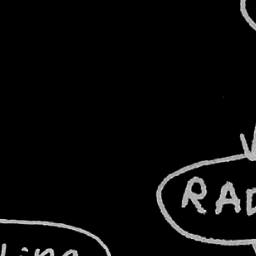 RAD
ling